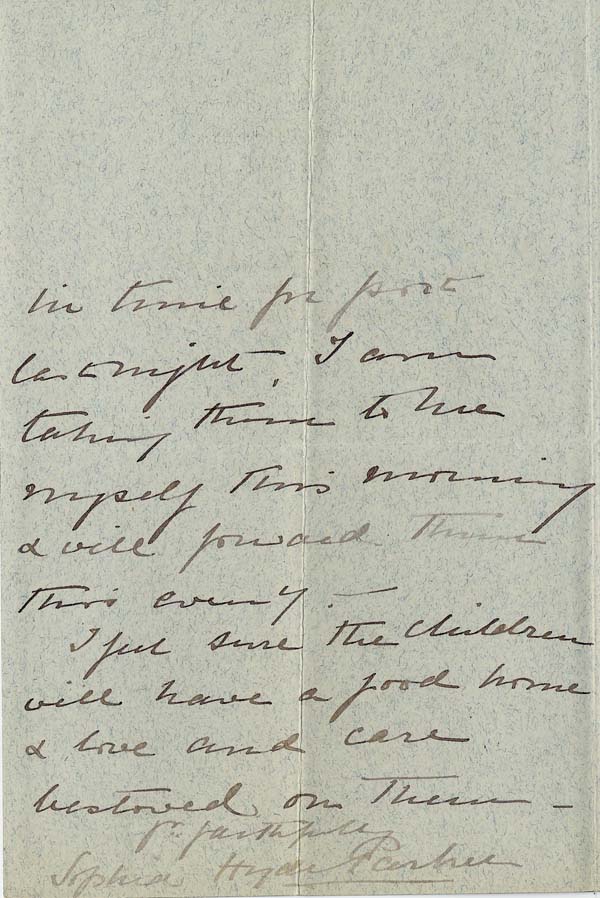 in time for post
last night, I am
taking them to her
myself this morning
& will forward them
this eveng —
I feel sure the children
will have a good home
& love and care
bestowed on them —
Yrs faithfully
Sophia Hyde Parker